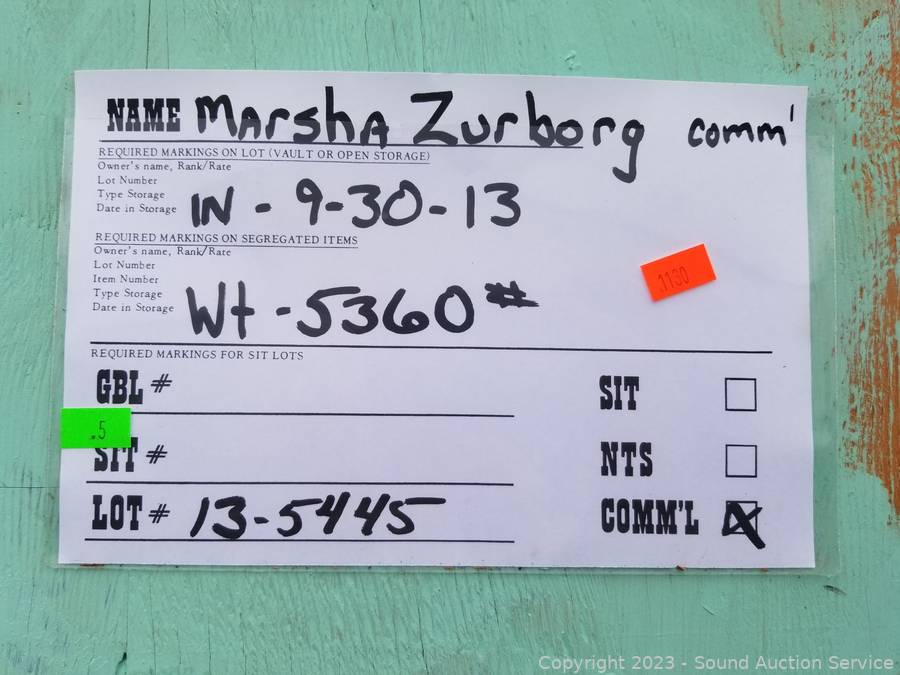 NAME Marsha Zurborg comm'
REQUIRED MARKINGS ON LOT (VAULT OR OPEN STORAGE)
Owner's name, Rank/Rate
Lot Number
Type Storage
Date in Storage
IN - 9-30-13
REQUIRED MARKINGS ON SEGREGATED ITEMS
Owner's name, Rank/Rate
Lot Number
Item Number
Type Storage
Date in Storage
Wt - 5360 #
1130
REQUIRED MARKINGS FOR SIT LOTS
GBL #
SIT
.5
SIT #
NTS
LOT # 13-5445
COMM'L X
Copyright 2023 - Sound Auction Service